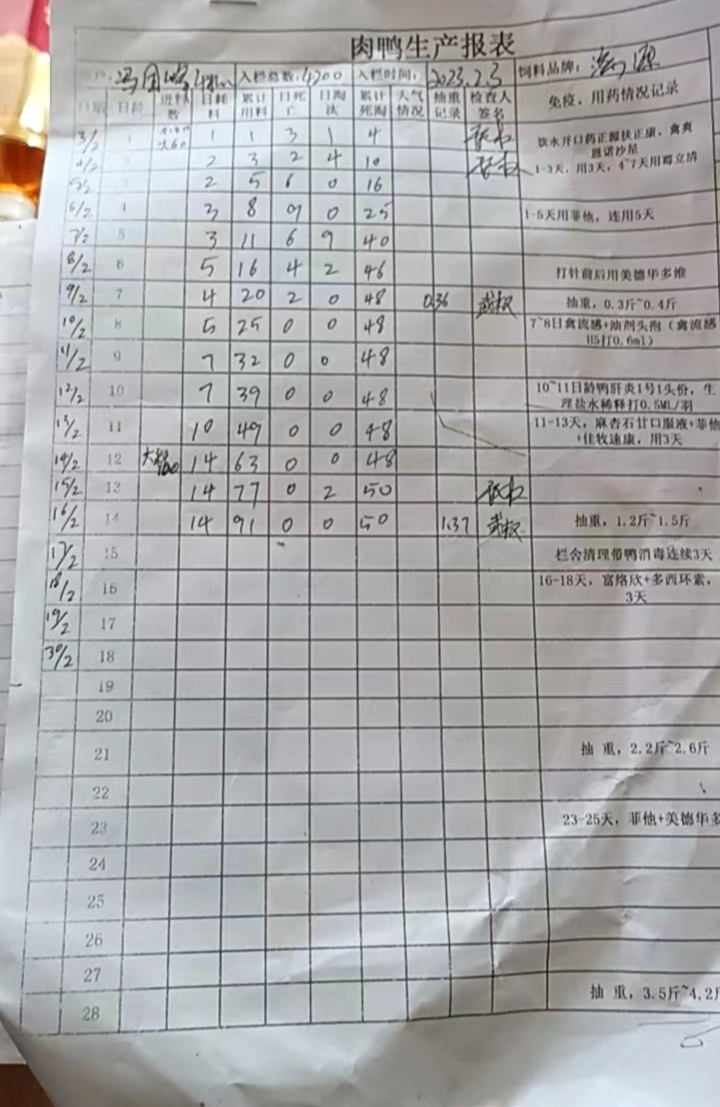 肉鸭生产报表
入栏总数: 4200 入栏时间: 2023.2.3 饲料品牌:
日期 日龄 进料数 日耗料 累计用料 日死亡 日淘汰 累计死淘 天气情况 抽重记录 检查人签名 免疫、用药情况记录
3/2 1 1 1 3 1 4 饮水开口药正源扶正康，禽爽
恩诺沙星
4/2 2 3 2 4 10 1-3天，用3天，4~7天用霉立清
5/2 2 5 6 0 16
6/2 4 3 8 9 0 25 1-5天用菲他，连用5天
7/2 5 3 11 6 9 40
8/2 6 5 16 4 2 46 打针前后用美德华多维
9/2 7 4 20 2 0 48 0.36 抽重，0.3斤~0.4斤
10/2 8 5 25 0 0 48 7~8日禽流感+油剂头孢（禽流感
H5打0.6ml）
11/2 9 7 32 0 0 48
12/2 10 7 39 0 0 48 10~11日龄鸭肝炎1号1头份，生
理盐水稀释打0.5ML/羽
13/2 11 10 49 0 0 48 11-13天，麻杏石甘口服液+菲他
+佳牧速康，用3天
14/2 12 14 63 0 0 48
15/2 13 14 77 0 2 50
16/2 14 14 91 0 0 50 1.37 抽重，1.2斤~1.5斤
17/2 15 栏舍清理带鸭消毒连续3天
18/2 16 16-18天，富烙欣+多西环素，
3天
19/2 17
30/2 18
19
20
21 抽 重，2.2斤~2.6斤
22
23 23-25天，菲他+美德华多
24
25
26
27
28 抽 重，3.5斤~4.2斤